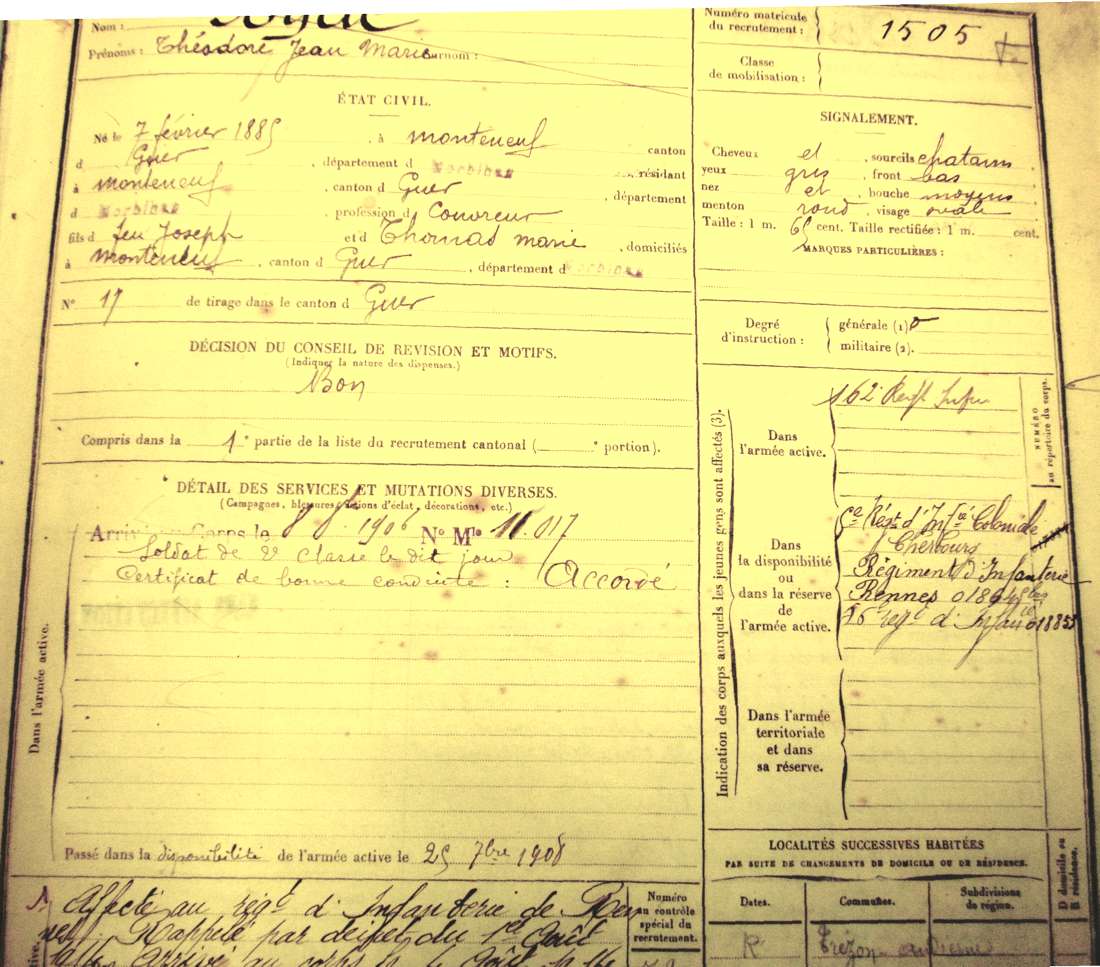 Nom :
Prénoms : Théodore Jean Marie surnom :
Numéro matricule du recrutement : 1505
Classe de mobilisation :
ÉTAT CIVIL.
Né le 7 février 1885, à monteneuf canton
d Guer, département d Morbihan, résidant
à monteneuf, canton d Guer, département
d Morbihan, profession d Couvreur
fils d feu Joseph et d Thomas marie, domiciliés
à monteneuf, canton d Guer, département d Morbihan
N° 17 de tirage dans le canton d Guer
DÉCISION DU CONSEIL DE REVISION ET MOTIFS.
(Indiquer la nature des dispenses.)
Bon
Compris dans la 1e partie de la liste du recrutement cantonal ( e portion).
DÉTAIL DES SERVICES ET MUTATIONS DIVERSES.
(Campagnes, blessures, actions d'éclat, décorations, etc.)
Arrivé au Corps le 8 1906 N° Mle 11.017
Soldat de 2e classe le dit jour
Certificat de bonne conduite : Accordé
Dans l'armée active.
Passé dans la disponibilité de l'armée active le 25 7bre 1908
Affecté au régt d'Infanterie de Ren
nes. Rappelé par décret du 1er Août
Arrivé au corps le Août
active.
Numéro au contrôle spécial du recrutement.
SIGNALEMENT.
Cheveux et, sourcils chatains
yeux gris, front bas
nez et, bouche moyens
menton rond, visage ovale
Taille : 1 m. 65 cent. Taille rectifiée : 1 m. cent.
MARQUES PARTICULIÈRES :
Degré d'instruction :
générale (1) 0
militaire (2).
Indication des corps auxquels les jeunes gens sont affectés (3).
NUMÉRO au répertoire du corps.
Dans l'armée active.
162e Regt Infrie
Dans la disponibilité ou dans la réserve de l'armée active.
Régt d'Infie Coloniale
Cherbourg
Régiment d'Infanterie
Rennes 01864
régt d'Infan 01885
Dans l'armée territoriale et dans sa réserve.
LOCALITÉS SUCCESSIVES HABITÉES
PAR SUITE DE CHANGEMENTS DE DOMICILE OU DE RÉSIDENCE.
Dates.
Communes.
Subdivisions de région.
D domicile ou R résidence.
R